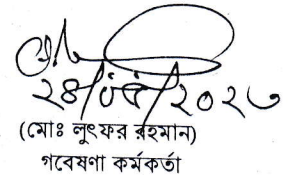 ২৪/০৮/২০২৩
(মোঃ লুৎফর রহমান)
গবেষণা কর্মকর্তা